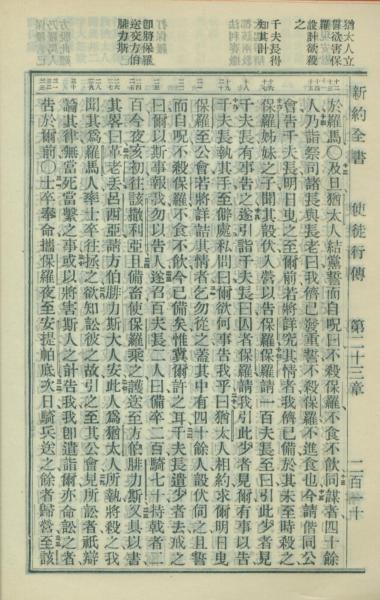 猶太人立
誓欲害保
羅
設計欲殺
之
千夫長得
知其計
即將保羅
送交方伯
腓力斯
新約全書 使徒行傳 第二十三章 二百一十
於羅馬〇及旦猶太人結黨誓而自呪曰不殺保羅不食不飲同謀者四十餘
人乃詣祭司諸長與長老曰我儕已發重誓不殺保羅不進食也今請偕同公
會告千夫長明日曳之至爾前若將詳究其情者我儕已備於其未至時殺之
保羅姊妹之子聞其設伏入營以告保羅保羅請一百夫長至曰引此少者見
千夫長有事告之遂引詣千夫長曰囚者保羅請我引此少者見爾有事以告
千夫長執其手至僻處私問曰爾欲何事告我乎曰猶太人相約求爾明日曳
保羅至公會若將詳詰其情者乞勿從之蓋其中有四十餘人設伏伺之且誓
而自呪不殺保羅不食不飲今已備矣惟冀爾許之耳千夫長遣少者去戒之
曰爾以斯事報我勿以告人遂召百夫長二人曰備卒二百騎七十持戟者二
百今夜亥初往該撒利亞且備畜使保羅乘之護送至方伯腓力斯又具以書
其畧曰革老丟呂西亞請方伯腓力斯大人安此人爲猶太人所執將殺之我
聞其爲羅馬人率士卒往拯之欲知訟彼之故引之至其公會見所訟者祇辯
論其律無當死當繫之事或以將害斯人之計告我我卽遣詣爾亦命訟之者
告於爾前〇士卒奉命攜保羅夜至安提帕底次日騎兵送之餘者歸營至該